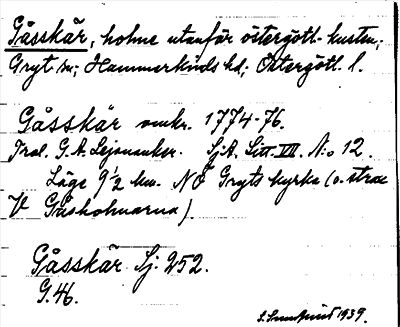 Gåsskär, holme utanför östergötl. kusten;
Gryt sn; Hammarkinds hd; Östergötl. l.
Gåsskär omkr. 1774-76.
G. A. Lejonanker. SjA. Litt. VII. N:o 12.
Läge 9 1/2 km. NÖ Gryts kyrka (o. strax
V Gåsholmarna).
Gåsskär Sj. 252.
G.46.
1939.